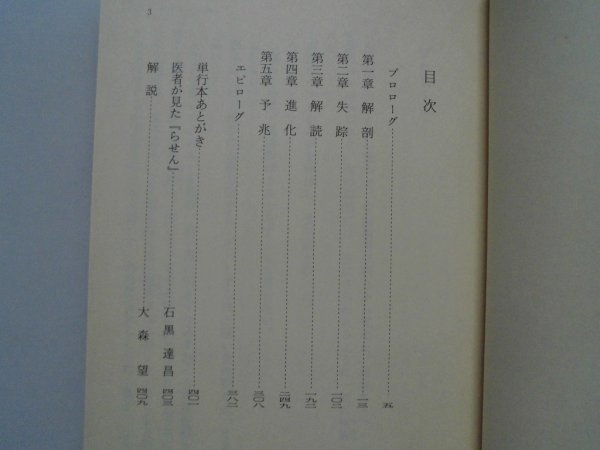 目次
プロローグ 五
第一章 解剖 一三
第二章 失踪 一〇二
第三章 解読 一九二
第四章 進化 二四九
第五章 予兆 三〇八
エピローグ 三八二
単行本あとがき 四〇一
医者が見た『らせん』 石黒達昌 四〇三
解説 大森望 四〇九
3